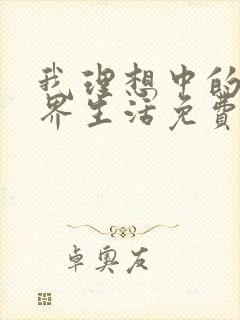 我理想中的
界生活免费
卓奥友